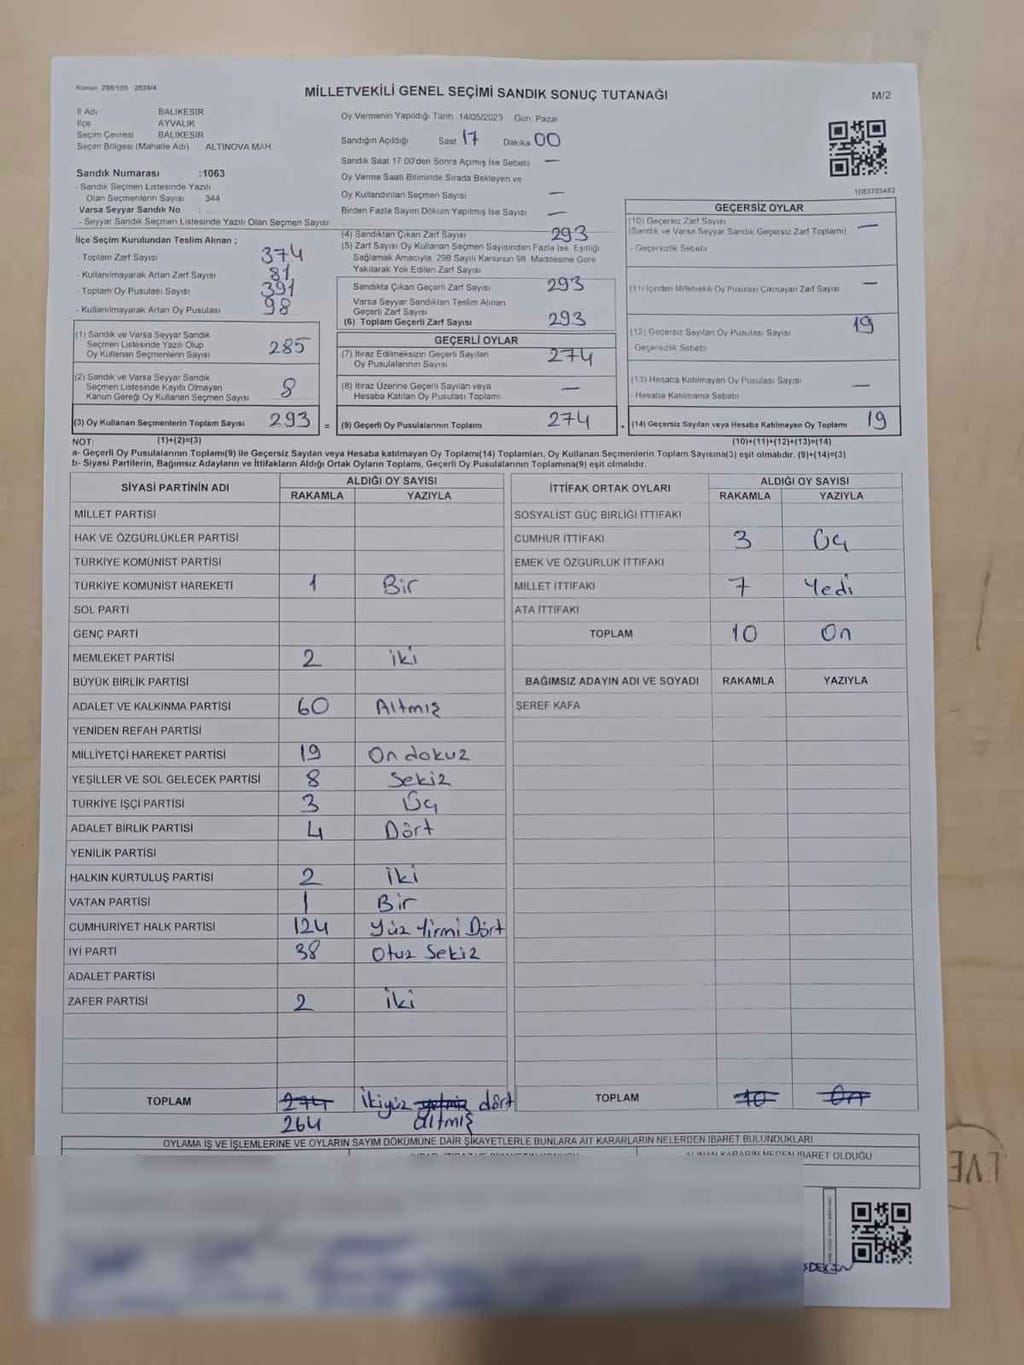 Kanun 298/105 2839/4
MİLLETVEKİLİ GENEL SEÇİMİ SANDIK SONUÇ TUTANAĞI
M/2
İl Adı BALIKESİR
İlçe AYVALIK
Seçim Çevresi BALIKESİR
Seçim Bölgesi (Mahalle Adı) ALTINOVA MAH.
Sandık Numarası :1063
- Sandık Seçmen Listesinde Yazılı
Olan Seçmenlerin Sayısı 344
Varsa Seyyar Sandık No :
- Seyyar Sandık Seçmen Listesinde Yazılı Olan Seçmen Sayısı
İlçe Seçim Kurulundan Teslim Alınan ;
- Toplam Zarf Sayısı 374
- Kullanılmayarak Artan Zarf Sayısı 81
- Toplam Oy Pusulası Sayısı 391
- Kullanılmayarak Artan Oy Pusulası 98
(1) Sandık ve Varsa Seyyar Sandık
Seçmen Listesinde Yazılı Olup
Oy Kullanan Seçmenlerin Sayısı 285
(2) Sandık ve Varsa Seyyar Sandık
Seçmen Listesinde Kayıtlı Olmayan
Kanun Gereği Oy Kullanan Seçmen Sayısı 8
(3) Oy Kullanan Seçmenlerin Toplam Sayısı 293 =
Oy Vermenin Yapıldığı Tarih 14/05/2023 Gün Pazar
Sandığın Açıldığı Saat 17 Dakika 00
Sandık Saat 17 00'den Sonra Açımış İse Sebebi —
Oy Verme Saati Bitiminde Sırada Bekleyen ve
Oy Kullandırılan Seçmen Sayısı —
Birden Fazla Sayım Döküm Yapılmış İse Sayısı —
(4) Sandıktan Çıkan Zarf Sayısı 293
(5) Zarf Sayısı Oy Kullanan Seçmen Sayısından Fazla İse, Eşitliği
Sağlamak Amacıyla, 298 Sayılı Kanunun 98. Maddesine Göre
Yakılarak Yok Edilen Zarf Sayısı
Sandıkta Çıkan Geçerli Zarf Sayısı 293
Varsa Seyyar Sandıktan Teslim Alınan
Geçerli Zarf Sayısı
(6) Toplam Geçerli Zarf Sayısı 293
GEÇERLİ OYLAR
(7) İtiraz Edilmeksizin Geçerli Sayılan
Oy Pusulalarının Sayısı 274
(8) İtiraz Üzerine Geçerli Sayılan veya
Hesaba Katılan Oy Pusulası Toplamı —
(9) Geçerli Oy Pusulalarının Toplamı 274
1083703482
GEÇERSİZ OYLAR
(10) Geçersiz Zarf Sayısı
(Sandık ve Varsa Seyyar Sandık Geçersiz Zarf Toplamı) —
- Geçersizlik Sebebi
(11) İçinden Milletvekili Oy Pusulası Çıkmayan Zarf Sayısı —
(12) Geçersiz Sayılan Oy Pusulası Sayısı 19
Geçersizlik Sebebi
(13) Hesaba Katılmayan Oy Pusulası Sayısı —
- Hesaba Katılmama Sebebi
(14) Geçersiz Sayılan veya Hesaba Katılmayan Oy Toplamı 19
NOT: (1)+(2)=(3) (10)+(11)+(12)+(13)=(14)
a- Geçerli Oy Pusulalarının Toplamı(9) ile Geçersiz Sayılan veya Hesaba katılmayan Oy Toplamı(14) Toplamları, Oy Kullanan Seçmenlerin Toplam Sayısına(3) eşit olmalıdır. (9)+(14)=(3)
b- Siyasi Partilerin, Bağımsız Adayların ve İttifakların Aldığı Ortak Oyların Toplamı, Geçerli Oy Pusulalarının Toplamına(9) eşit olmalıdır.
SİYASİ PARTİNİN ADI ALDIĞI OY SAYISI
RAKAMLA YAZIYLA
MİLLET PARTİSİ
HAK VE ÖZGÜRLÜKLER PARTİSİ
TÜRKİYE KOMÜNİST PARTİSİ
TÜRKİYE KOMÜNİST HAREKETİ 1 Bir
SOL PARTİ
GENÇ PARTİ
MEMLEKET PARTİSİ 2 iki
BÜYÜK BİRLİK PARTİSİ
ADALET VE KALKINMA PARTİSİ 60 Altmış
YENİDEN REFAH PARTİSİ
MİLLİYETÇİ HAREKET PARTİSİ 19 On dokuz
YEŞİLLER VE SOL GELECEK PARTİSİ 8 Sekiz
TÜRKİYE İŞÇİ PARTİSİ 3 Üç
ADALET BİRLİK PARTİSİ 4 Dört
YENİLİK PARTİSİ
HALKIN KURTULUŞ PARTİSİ 2 iki
VATAN PARTİSİ 1 Bir
CUMHURİYET HALK PARTİSİ 124 Yüz Yirmi Dört
İYİ PARTİ 38 Otuz Sekiz
ADALET PARTİSİ
ZAFER PARTİSİ 2 iki
TOPLAM 274 İkiyüz yetmiş dört
264 altmış
İTTİFAK ORTAK OYLARI ALDIĞI OY SAYISI
RAKAMLA YAZIYLA
SOSYALİST GÜÇ BİRLİĞİ İTTİFAKI
CUMHUR İTTİFAKI 3 Üç
EMEK VE ÖZGÜRLÜK İTTİFAKI
MİLLET İTTİFAKI 7 Yedi
ATA İTTİFAKI
TOPLAM 10 On
BAĞIMSIZ ADAYIN ADI VE SOYADI RAKAMLA YAZIYLA
ŞEREF KAFA
TOPLAM 10 On
OYLAMA İŞ VE İŞLEMLERİNE VE OYLARIN SAYIM DÖKÜMÜNE DAİR ŞİKAYETLERLE BUNLARA AİT KARARLARIN NELERDEN İBARET BULUNDUKLARI
ALINAN KARARIN NEDEN İBARET OLDUĞU